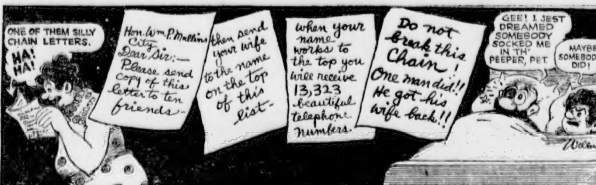 ONE OF THEM SILLY
CHAIN LETTERS.
HA!
HA!
Hon. Wm. P. Mullins
City
Dear Sir:—
Please send
copy of this
letter to ten
friends—
then send
your wife
to the name
on the top
of this
list—
when your
name
works to
the top you
will receive
13,323
beautiful
telephone
numbers.
Do not
break this
Chain!
One man did!!
He got his
wife back!!
GEE! I JEST
DREAMED
SOMEBODY
SOCKED ME
IN TH'
PEEPER, PET
MAYBE
SOMEBOD
DID!